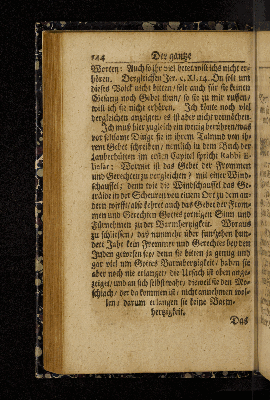 144 Der gantze
Worten: Auch so ihr viel betet will ichs nicht er-
hören. Dergleichen Jer. c. XI. 14. Du solt um
dieses Volck nicht bitten / solt auch für sie keinen
Gesang noch Gebet thun / so sie zu mir ruffen /
will ich sie nicht erhören. Ich könte noch viel
dergleichen anzeigen / es ist aber nicht vonnöthen.
Ich muß hier zugleich ein wenig berühren / was
vor seltsame Dinge sie in ihrem Talmud von ih-
rem Gebet schreiben / nemlich in dem Buch der
Lauberhütten im ersten Capitel spricht Rabbi E-
liesar: Wormit ist das Gebet der Frommen
und Gerechten zu vergleichen? mit einer Wind-
schauffel; denn wie die Windschauffel das Ge-
träide in der Scheuren von einem Ort zu dem an-
dern wirfft / also kehret auch das Gebet der From-
men und Gerechten Gottes zornigen Sinn und
Fürnehmen zu der Barmhertzigkeit. Woraus
zu schliessen / daß nunmehr über funfzehen hun-
dert Jahr kein Frommer und Gerechter bey den
Juden gewesen sey; denn sie beten ja genug und
gar viel um Gottes Barmhertzigkeit / haben sie
aber noch nie erlanget / die Ursach ist oben ange-
zeiget / und an sich selbst wahr / dieweil sie den Me-
schiach / der da kommen ist / nicht annehmen wol-
len / darum erlangen sie keine Barm-
hertzigkeit.
Das